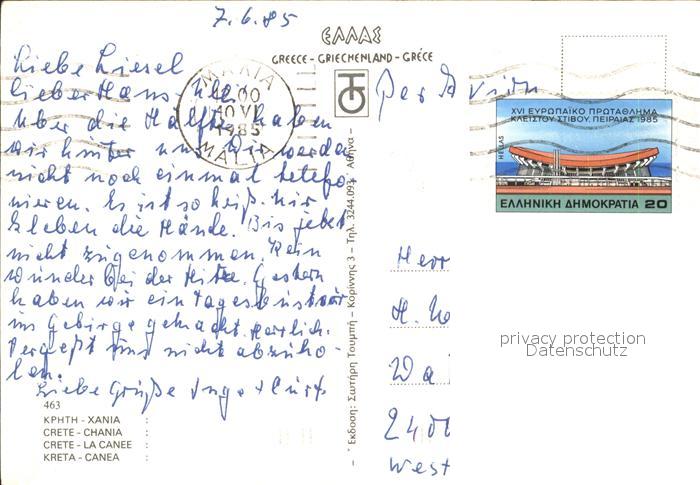 7.6.85
ΕΛΛΑΣ
GREECE - GRIECHENLAND - GRÉCE
Liebe Liesel
lieber Hans
über die Hälfte haben
wir hinter uns. Wir werden
nicht noch einmal telefo
nieren. Es ist so heiß. Mir
kleben die Hände. Bis jetzt
nicht zugenommen. Kein
wunder bei der Hitze. Gestern
haben wir ein Tagestour
ins Gebirge gemacht. Herrlich.
Vergeßt uns nicht abzuho-
len.
Liebe Grüße Inge + Curt
ΜΑΛΙΑ
00
10 VI
1985
MALIA
per Avion
XVI ΕΥΡΩΠΑΪΚΟ ΠΡΩΤΑΘΛΗΜΑ
ΚΛΕΙΣΤΟΥ ΣΤΙΒΟΥ, ΠΕΙΡΑΙΑΣ 1985
HELLAS
ΕΛΛΗΝΙΚΗ ΔΗΜΟΚΡΑΤΙΑ 20
Herr
H.
Wa
240
West
privacy protection
Datenschutz
Έκδοση: Σωτήρη Τουμπή - Κορίννης 3 - Τηλ. 3244.093 - Αθήνα -
463
ΚΡΗΤΗ - ΧΑΝΙΑ :
CRETE - CHANIA :
CRETE - LA CANEE :
KRETA - CANEA :